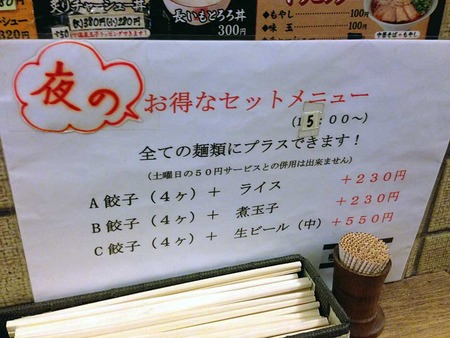 炙りチャーシュー丼
(大)380円(小)280円
320円
長いもとろろ丼
300円
・もやし
・味玉
夜の
お得なセットメニュー
(15:00～)
全ての麺類にプラスできます!
(土曜日の50円サービスとの併用は出来ません)
A餃子(4ヶ)+ ライス +230円
B餃子(4ヶ)+ 煮玉子 +230円
C餃子(4ヶ)+ 生ビール(中) +550円